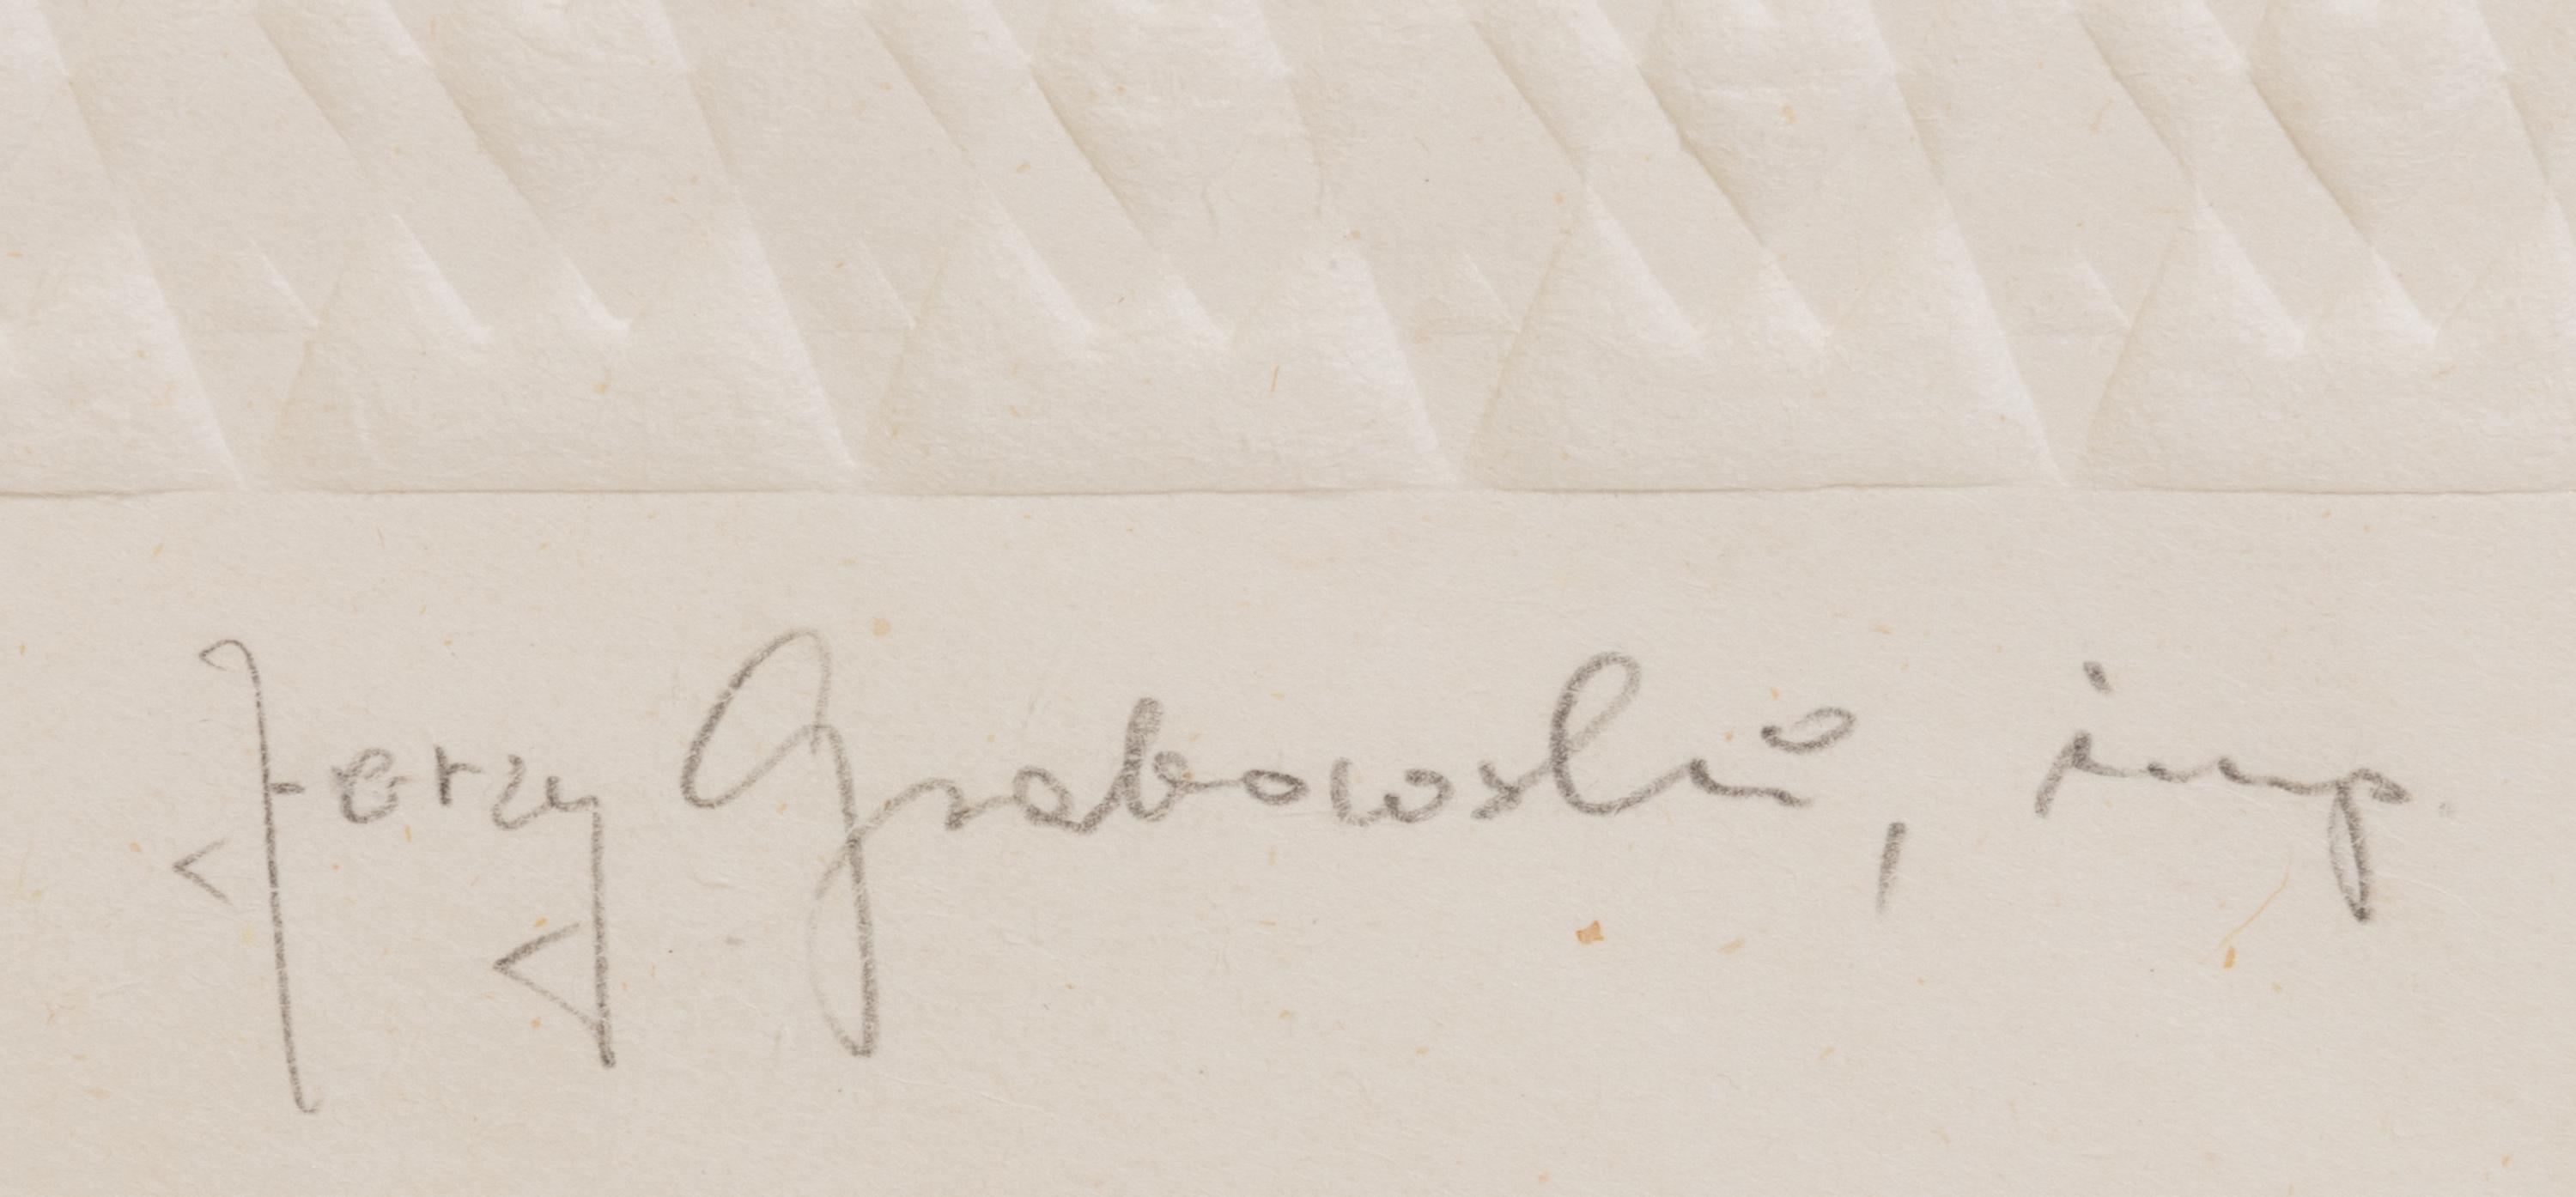 Jerzy Grabowski, imp.